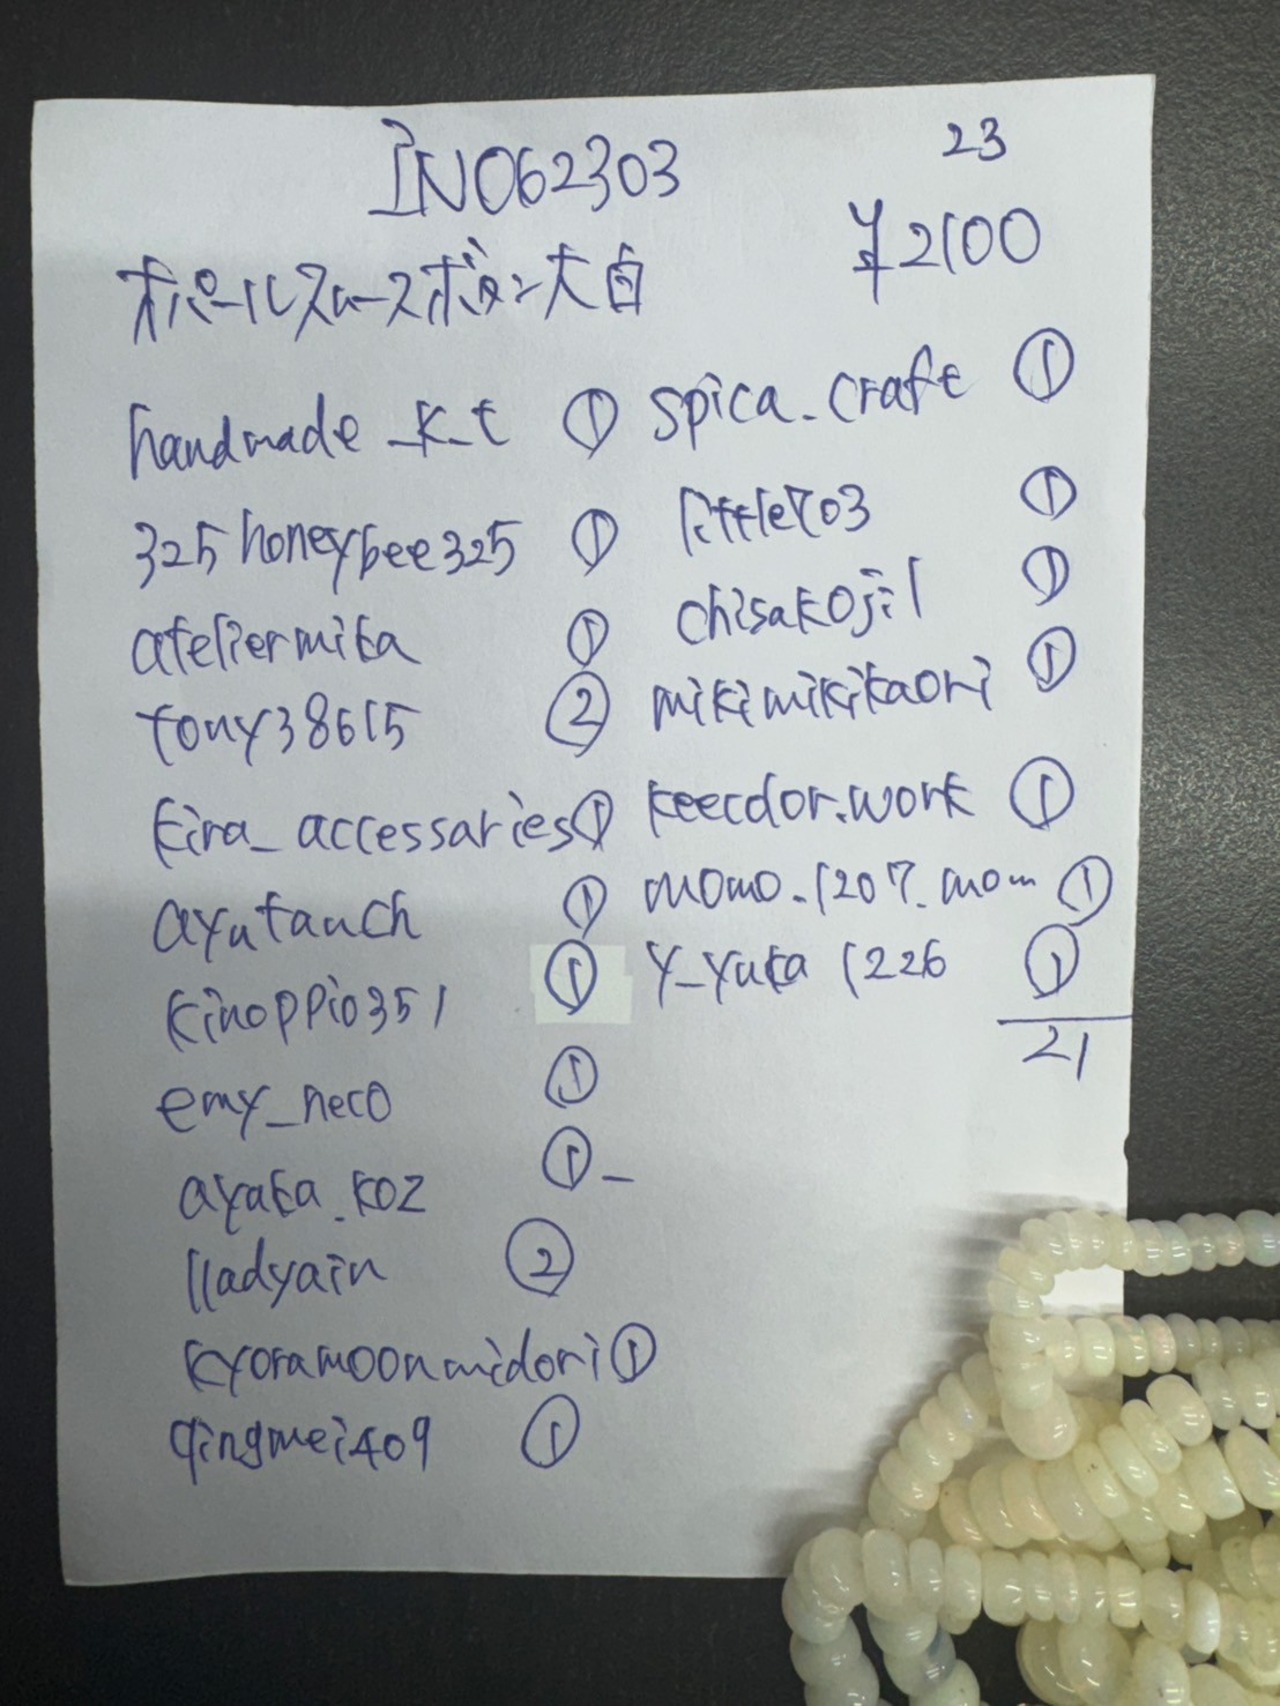 INO62303
23
¥2100
オパールスムースボタン大白
handmade_k_t ①
325honeybee325 ①
ateliermika ①
tony38615 ②
kira_accessaries ①
ayutauch ①
kinoppio351 ①
emy_neco ①
ayaka_koz ①
lladyain ②
kyoramoonmidori ①
qingmei409 ①
spica_craft ①
little703 ①
chisakoji1 ①
mikimikikaori ①
keecdor.work ①
momo.1207.mom ①
y_yuka1226 ①
21